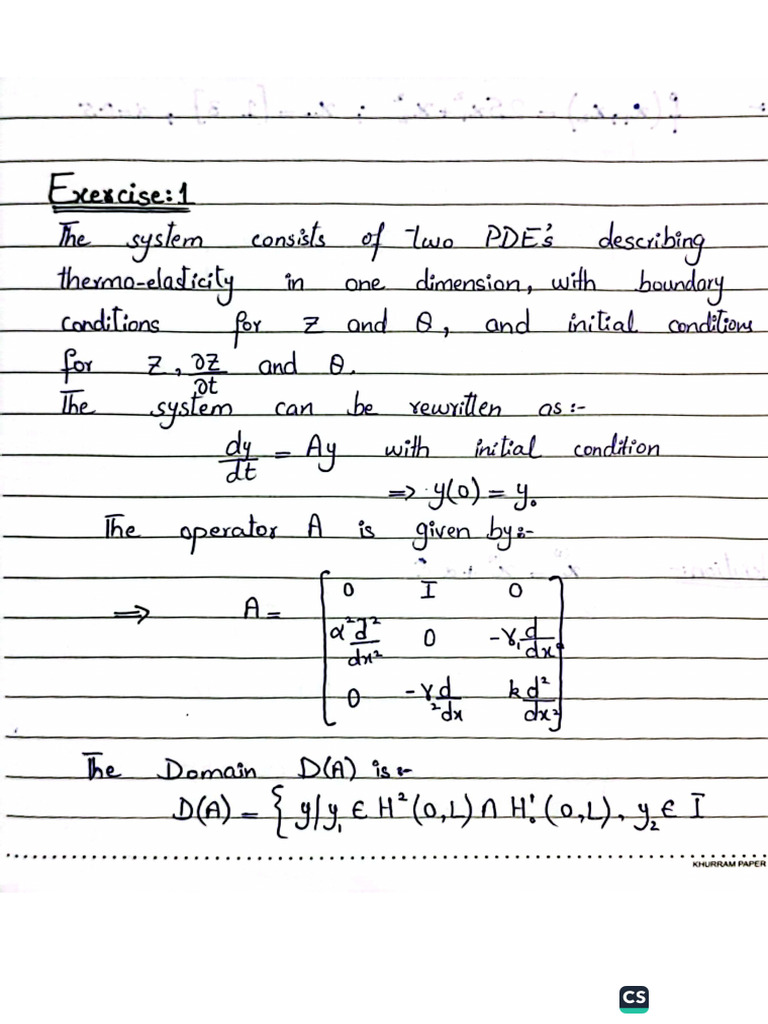 Exercise:1
The system consists of two PDE's describing
thermo-elasticity in one dimension, with boundary
conditions for z and θ, and initial conditions
for z, ∂z/∂t and θ.
The system can be rewritten as:-
dy/dt = Ay with initial condition
=> y(0) = y₀
The operator A is given by:-
=> A = [ 0 I 0
α² d²/dx² 0 -γ₁ d/dx
0 -γ₂ d/dx k d²/dx² ]
The Domain D(A) is:-
D(A) = { y/y₁ ∈ H²(0,L) ∩ H₀¹(0,L), y₂ ∈ I
KHURRAM PAPER
CS